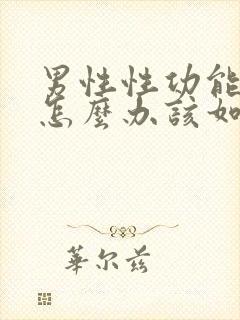 男性性功能
怎麼办該如
華尔兹